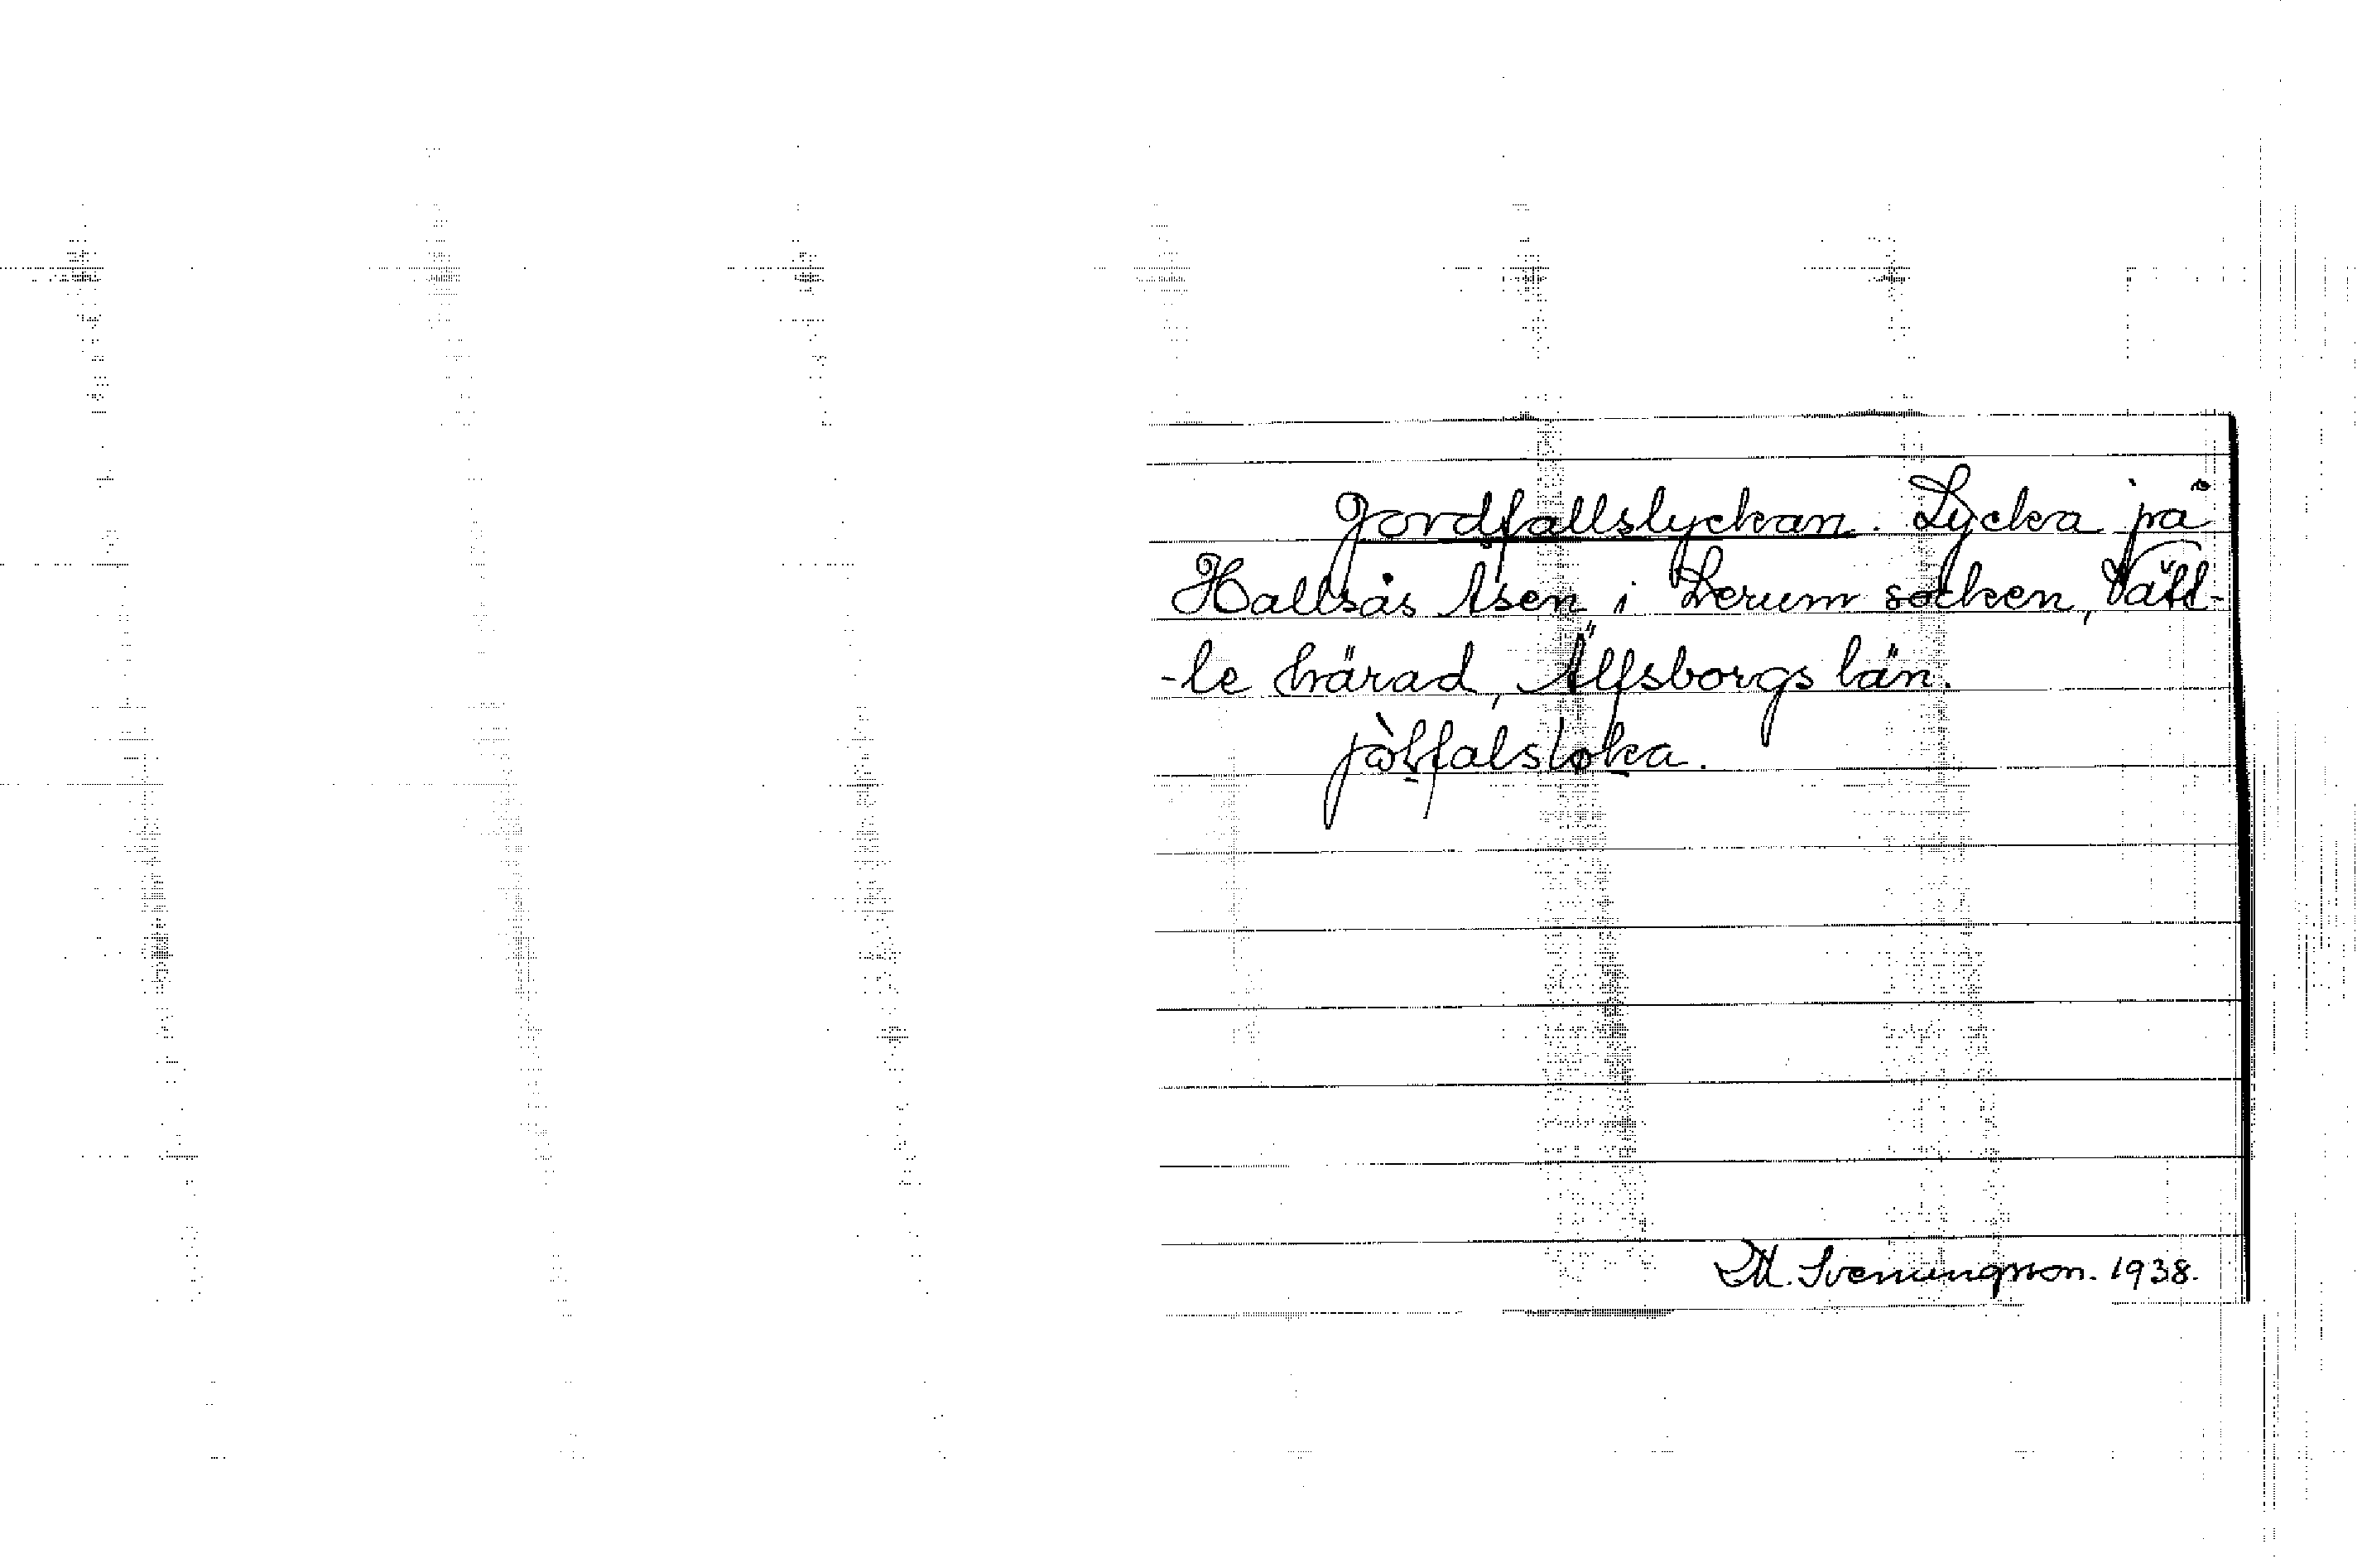 Jordfallslyckan. Lycka på
Hallsås Åsen i Lerum socken, Vätt-
-le härad, Älfsborgs län.
jòḷfalsloka.
M. Svenungsson. 1938.